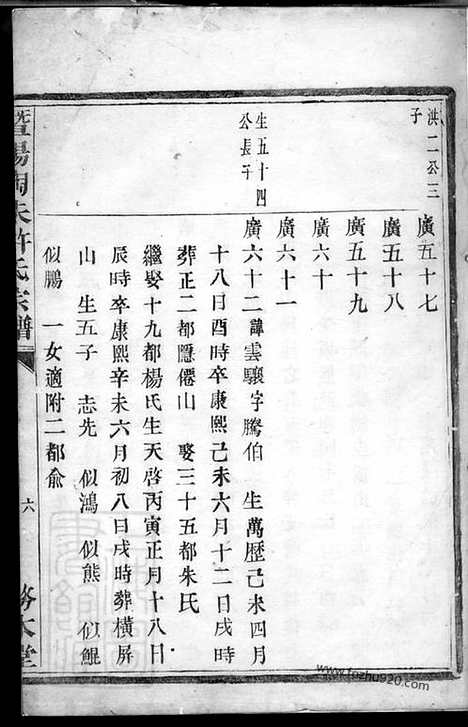 洪二公三
子
廣五十七
廣五十八
廣五十九
廣六十
廣六十一
生五十四
公長子
廣六十二諱雲驤字騰伯 生萬歷己未四月
十八日酉時卒康熙己未六月十二日戌時
葬正二都隱僊山 娶三十五都朱氏
繼娶十九都楊氏生天啓丙寅正月十八日
辰時卒康熙辛未六月初八日戌時葬橫屏
山 生五子 志先 似鴻 似熊 似鯤
似鵬 一女適附二都俞
暨陽 夫許氏宗譜
六
務本堂
www.fozhu920.com